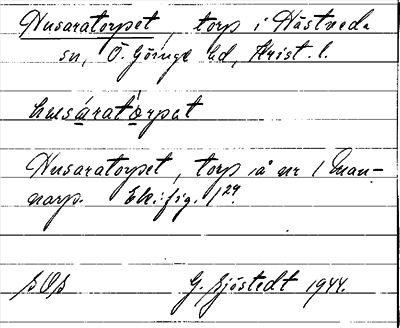 Husaratorpet, torp i Hästveda
sn, Ö. Göinge hd, Krist. l.
husáratòrpat
Husaratorpet, torp å nr 1 Eman-
narp. Ek. fig. 129.
SOS G. Sjöstedt 1944.